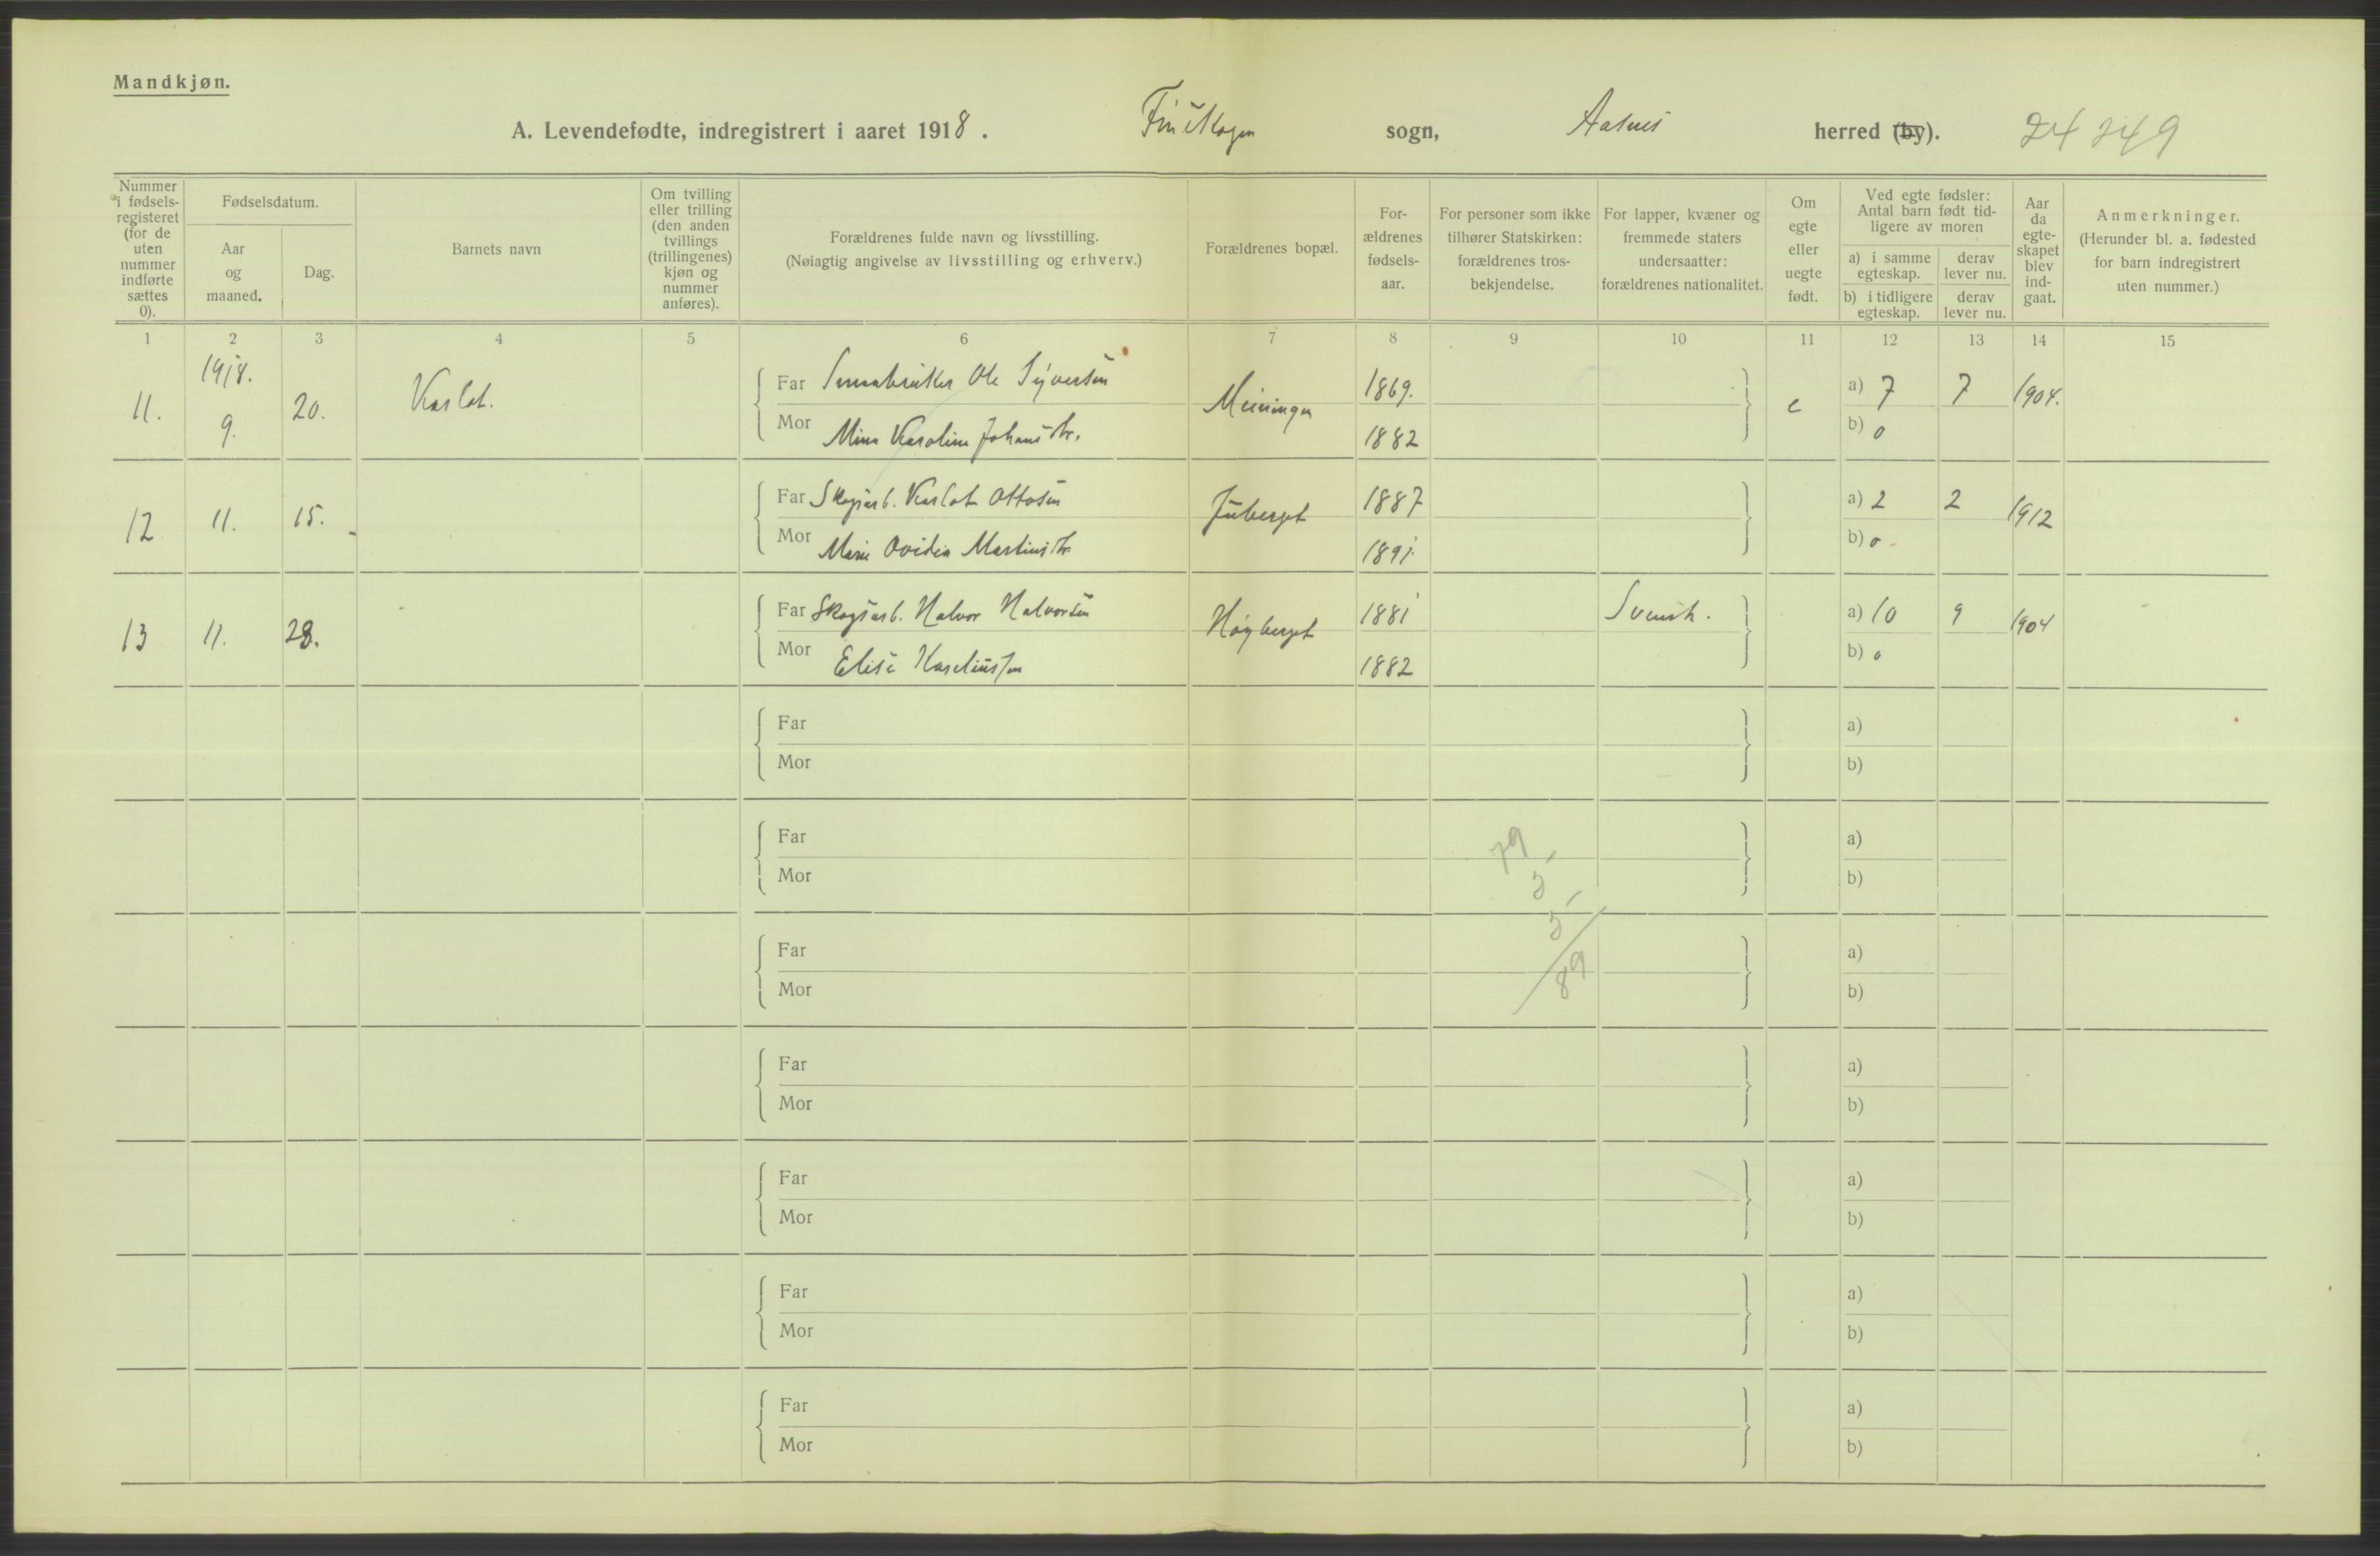 Mandkjøn.
A. Levendefødte, indregistrert i aaret 1918. Finskogen sogn, Aasnes herred (by). 24 249
Nummer i fødselsregisteret (for de uten nummer indførte sættes 0).
Fødselsdatum.
Aar og maaned.
Dag.
Barnets navn
Om tvilling eller trilling (den anden tvillings (trillingenes) kjøn og nummer anføres).
Forældrenes fulde navn og livsstilling.
(Nøiagtig angivelse av livsstilling og erhverv.)
Forældrenes bopæl.
Forældrenes fødselsaar.
For personer som ikke tilhører Statskirken: forældrenes trosbekjendelse.
For lapper, kvæner og fremmede staters undersaatter: forældrenes nationalitet.
Om egte eller uegte født.
Ved egte fødsler: Antal barn født tidligere av moren
a) i samme egteskap.
derav lever nu.
b) i tidligere egteskap.
derav lever nu.
Aar da egteskapet blev indgaat.
Anmerkninger.
(Herunder bl. a. fødested for barn indregistrert uten nummer.)
1 2 3 4 5 6 7 8 9 10 11 12 13 14 15
11. 1918. 9. 20. Karlot. Far Ole Syversen 1869. e a) 7 7 1904.
Mor Mina Karoline Johansdtr. 1882 b) 0
12 11. 15. - Far Skogsarb. Karlot Ottosen Juberget 1887 a) 2 2 1912
Mor Marie Ovidia Martinsdtr 1891. b) 0 -
13 11. 28. Far Skogsarb. Halvor Halvorsen Høgberget 1881 Svensk. a) 10 9 1904
Mor Elise 1882 b) 0
Far a)
Mor b)
Far 79 a)
Mor 5 b)
Far 5 a)
Mor 89 b)
Far a)
Mor b)
Far a)
Mor b)
Far a)
Mor b)
Far a)
Mor b)